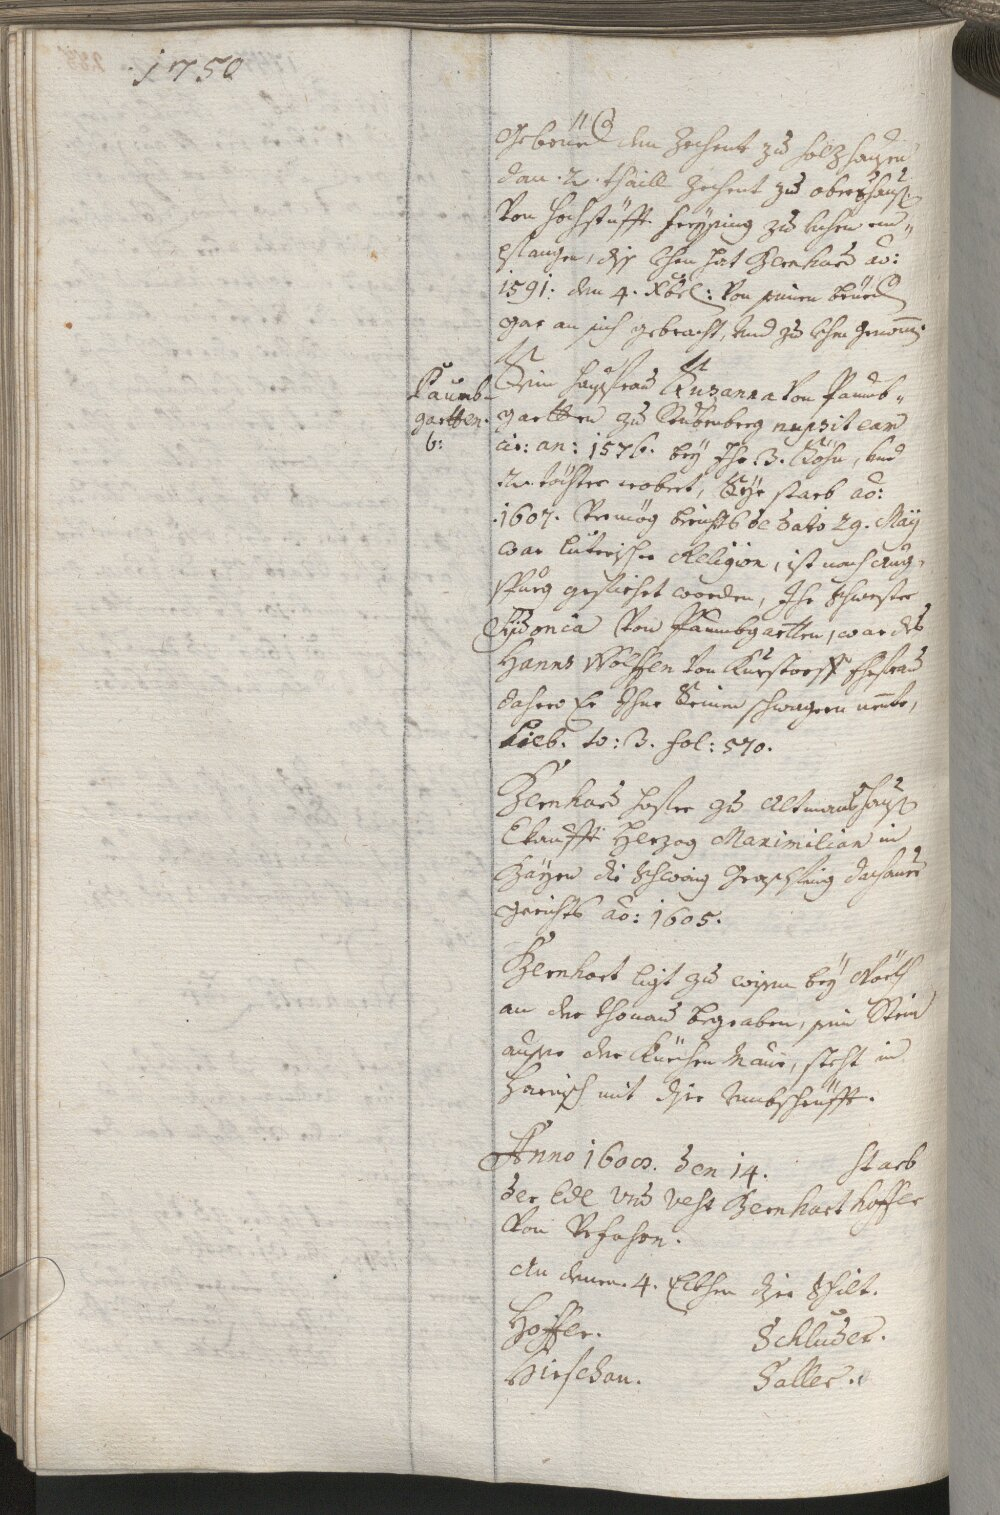 1750
Gebrüed. den Zehent zu Holzhausen
dan .2. thaill Zehent zu obershaus.
Von Hochstüfft Freysing zu Lehen em„
pfangen, diß Lehen hat Bernhard ao:
1591. den 4. Xbris: Von seinen brüed.
gar an sich gebracht, und zu Lehen genomen.
Paumb-
gartten.
6:
Sein Haußfrau Susanna Von Paumb„
gartten zu nupsit eam
cir: an: 1576. bey Ihr .3. Söhn, und
2. töchter erobert, Sye starb ao:
.1607. Vermög berichts de dato 29. May
war lutrischer Religion, ist nach Aug„
spurg gefiehrt worden, Ihr Schwester
Sydonia Von Paumbgartten, war des
Hanns Wolffen Von Ehefrau
dahero Er Ihne Seinen schwagern nente,
Lieb. to: 3. fol: 570.
Bernhard Hofer zu Altmanshaus.
Ekaufft Herzog Maximilian in
Bayrn die Schwaig Dachauer
gerichts ao: 1605.
Bernhart ligt zu bey
an der Thonau begraben, sein Stein
ausser der Kürchen Maur, steht in
Harnisch mit diser Umbschrüfft.
Anno 1600. den 14. starb
der Edl und Vest Bernhart Hoffer
Von Urfahrn.
An denen .4. Ekhen dise Schilt.
Hoffer. Schluder.
Hirschau. Saller.